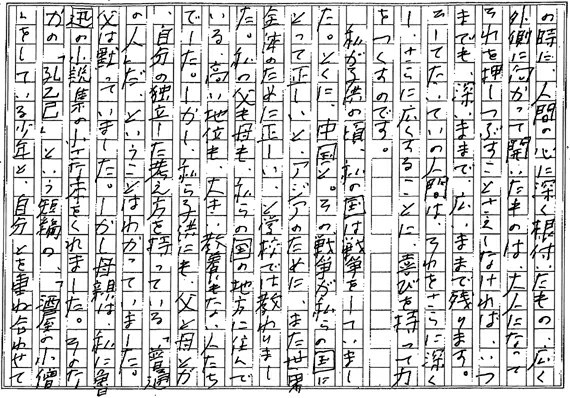 の時に、人間の心に深く根付いたもの、広く
外側に向かって開いたものは、大人になって
それを押しつぶすことさえしなければ、いつ
までも、深いままで、広いままで残ります。
そしてたいていの人間は、それをさらに深く
し、さらに広くすることに、喜びを持って力
をつくすのです。
私が子供の頃、私の国は戦争をしていまし
た。とくに、中国と。その戦争が私らの国に
とって正しいと、アジアのために、また世界
全体のために正しい、と学校では教わりまし
た。私の父も母も、私らの国の地方に住んで
いる、高い地位も、大きい教養もない人たち
でした。しかし、私ら子供にも、父と母とが
、自分の独立した考え方を持っている「普通
の人」だ、ということはわかっていました。
父は黙っていました。しかし母親は、私に魯
迅の小説集の小さな本をくれました。そのな
かの、「孔乙己」という短編の、「酒屋の小僧
」をしている少年と、自分とを重ね合わせて